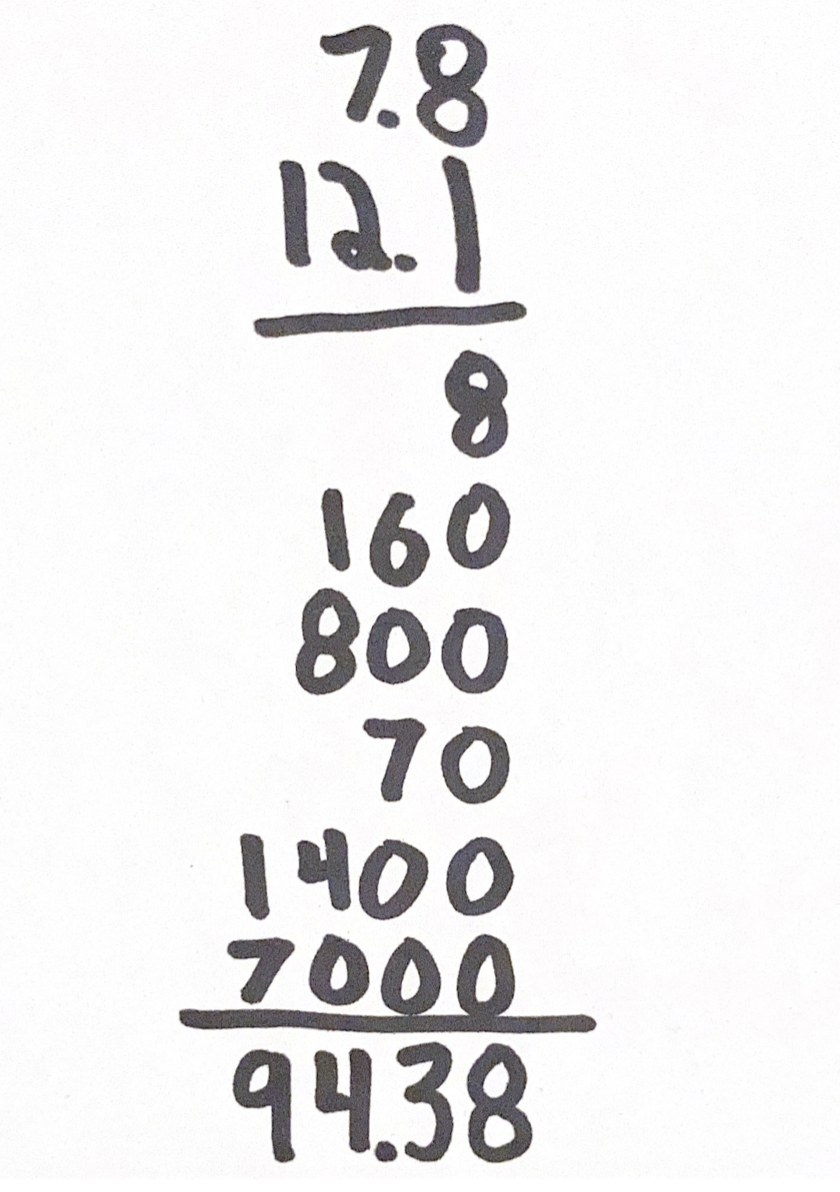 7.8
12.1
8
160
800
70
1400
7000
94.38